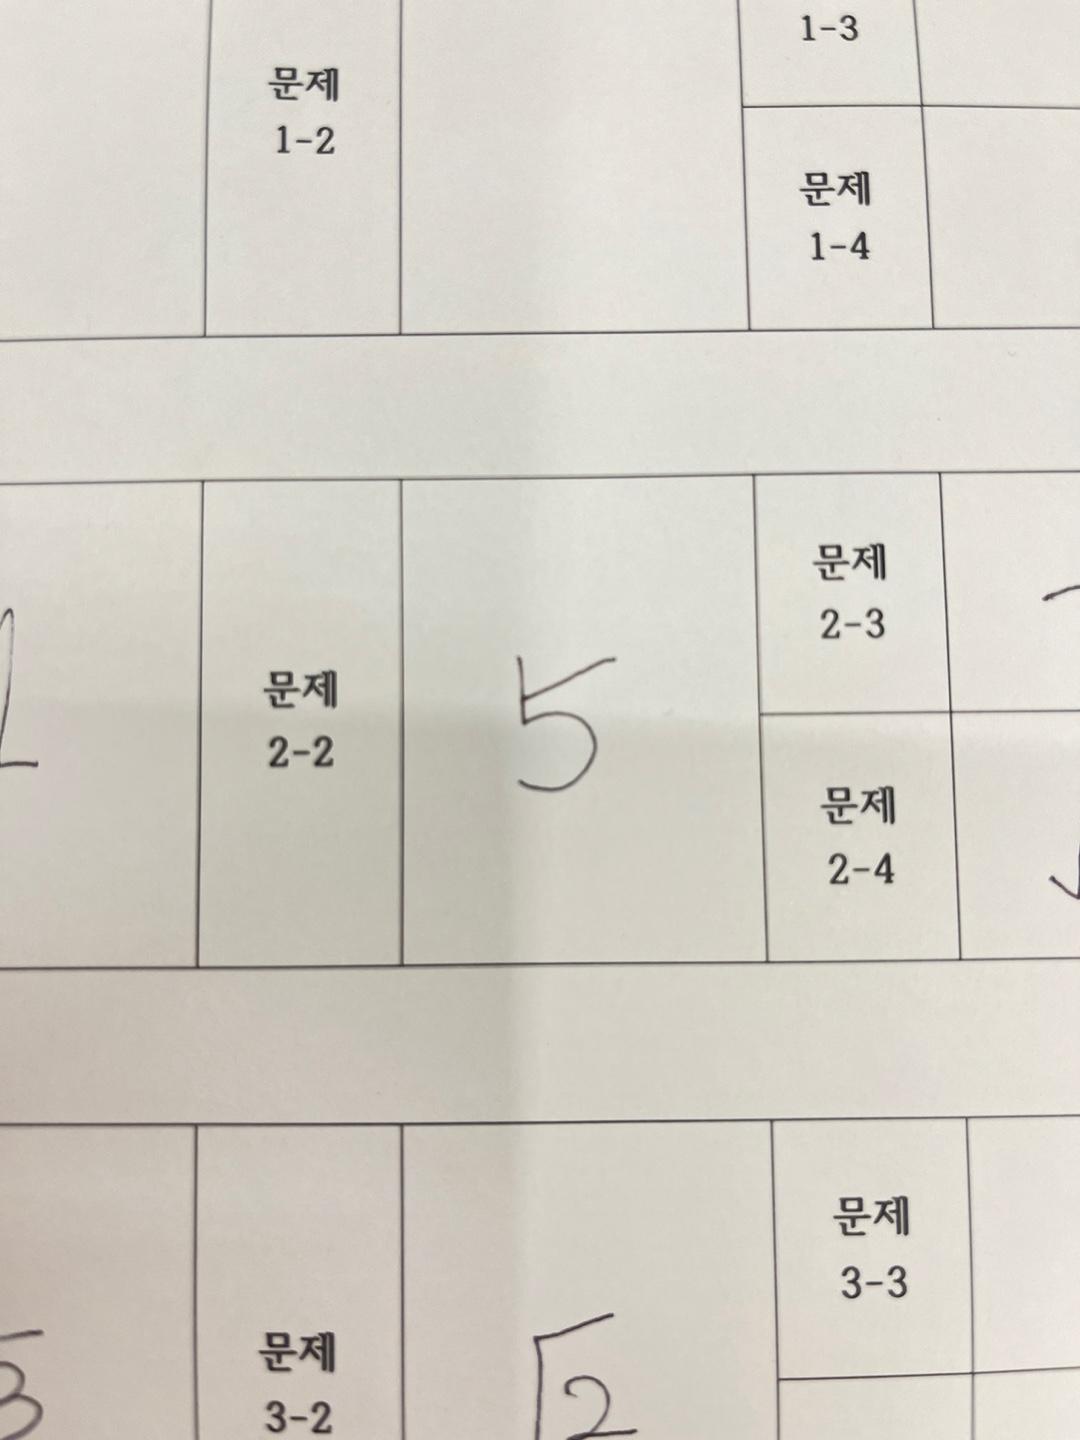 1-3
문제
1-2
문제
1-4
문제
2-2
5
문제
2-3
문제
2-4
문제
3-2
√2
문제
3-3